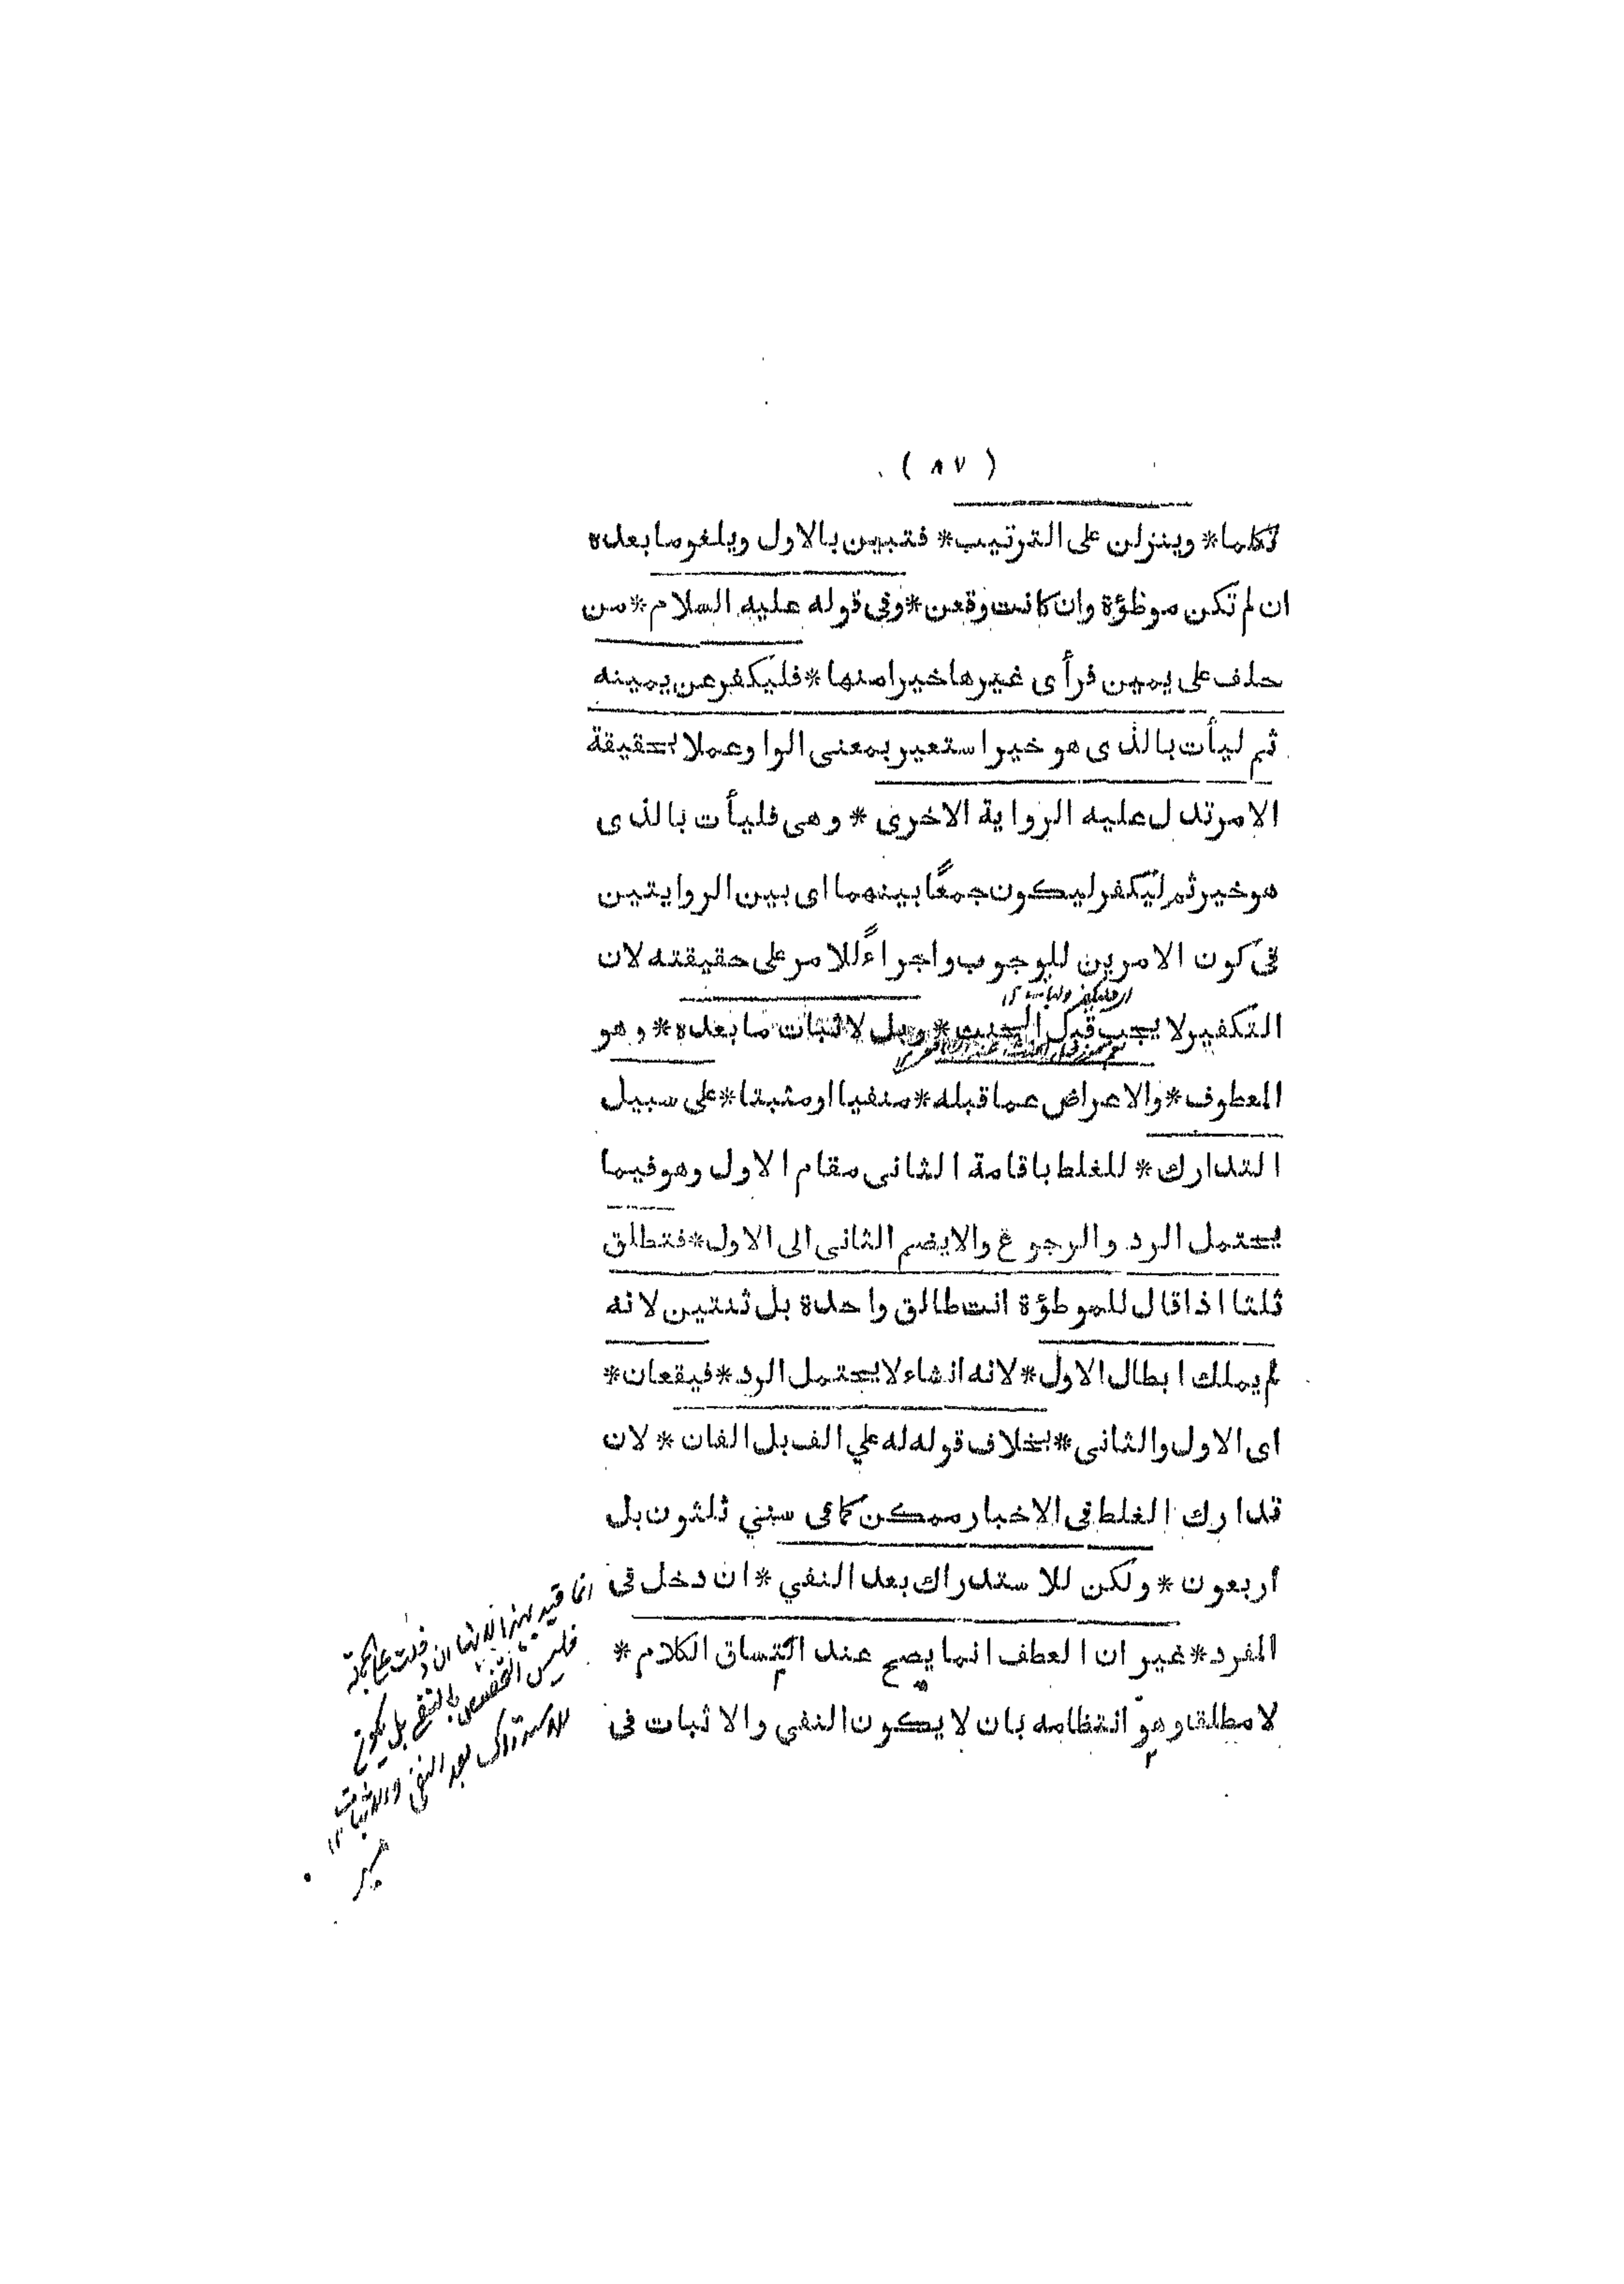 ( ٨٧ )
تكلما * وينزلن على الترتيب * فتبين بالاول ويلغو ما بعده
ان لم تكن موطؤة وان كانت وقعن * وفى قوله عليه السلام * من
حلف على يمين فرأى غيرها خيرا منها * فليكفر عن يمينه
ثم ليأت بالذى هو خير استعير بمعنى الواو عملا بحقيقة
الامر تدل عليه الرواية الاخرى * وهى فليأت بالذى
هو خير ثم ليكفر ليكون جمعًا بينهما اى بين الروايتين
فى كون الامرين للوجوب واجراءً للامر على حقيقته لان
التكفير لا يجب قبل الحنث * وبل لاثبات ما بعده * وهو
المعطوف * والاعراض عما قبله * منفيا او مثبتا * على سبيل
التدارك * للغلط باقامة الثانى مقام الاول وهو فيما
يحتمل الرد والرجوع والا يضم الثانى الى الاول * فتطلق
ثلثا اذا قال للموطؤة انت طالق واحدة بل ثنتين لانه
لم يملك ابطال الاول * لانه انشاء لا يحتمل الرد * فيقعان *
اى الاول والثانى * بخلاف قوله له علي الف بل الفان * لان
تدارك الغلط فى الاخبار ممكن كما فى سنني ثلثون بل
اربعون * ولكن للاستدراك بعد النفي * ان دخل فى
المفرد * غير ان العطف انما يصح عند اتساق الكلام *
لا مطلقا وهو انتظامه بان لا يكون النفي والاثبات فى
للاستدراك بعد النفي والاثبات ١٢